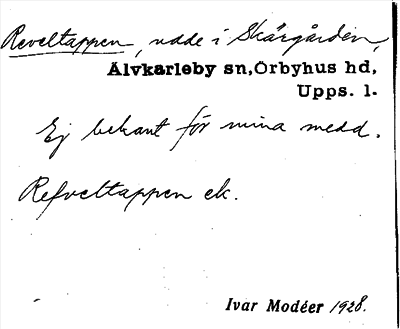 Reveltappen, udde i Skärgården,
Älvkarleby sn, Örbyhus hd,
Upps. l.
Ej bekant för mina medd.
Refveltappen ek.
Ivar Modéer 1928.